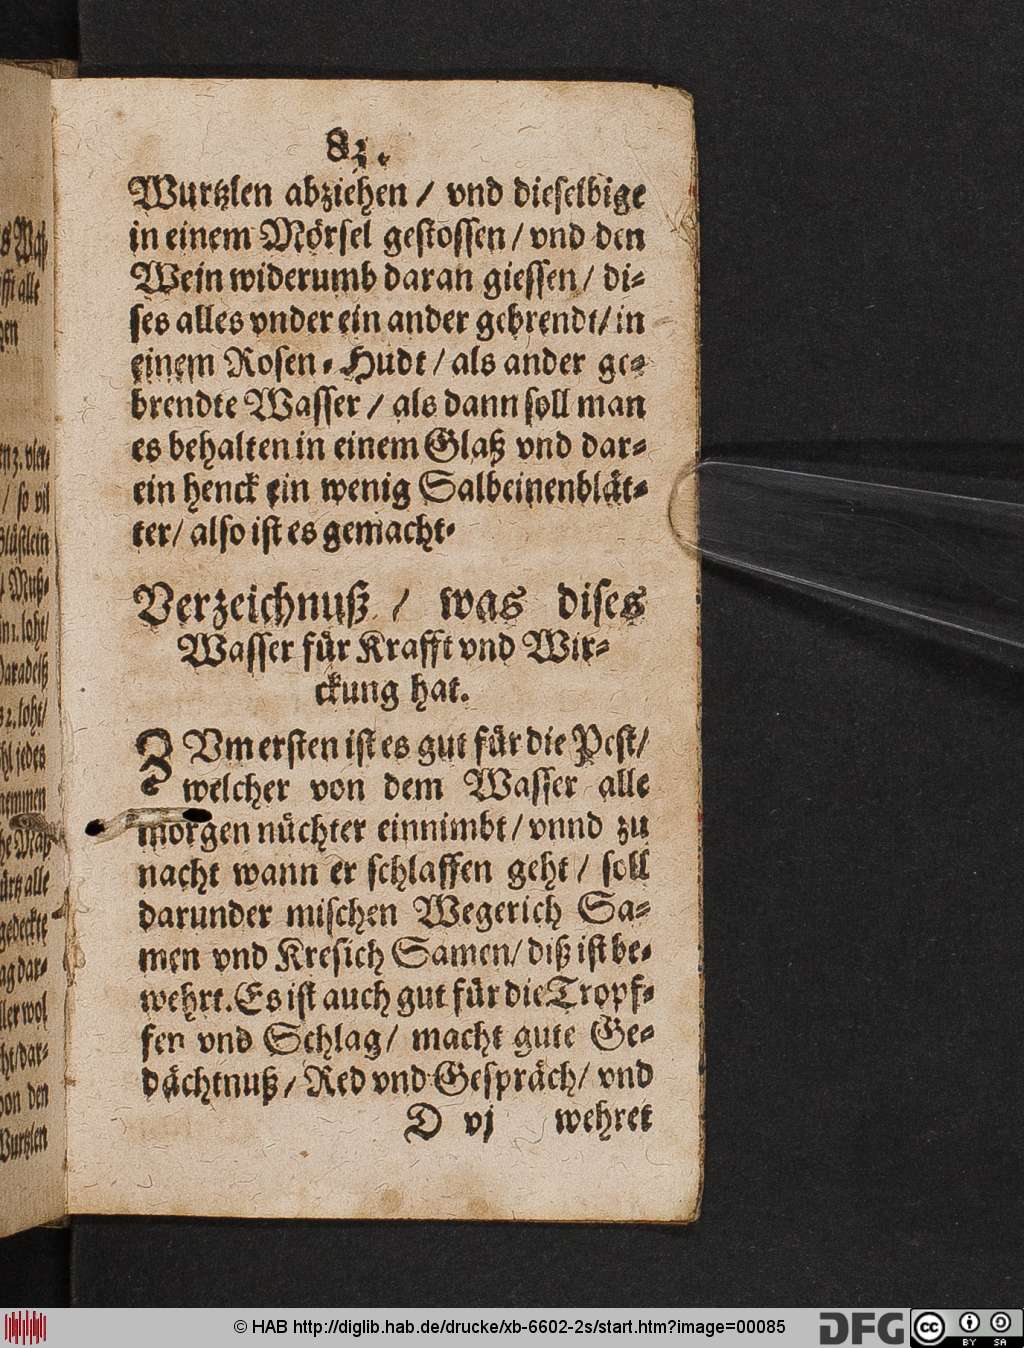 82.
Wurtzlen abziehen / vnd dieselbige
in einem Mörsel gestossen / vnd den
Wein widerumb daran giessen / di-
ses alles vnder ein ander gebrendt / in
einem Rosen-Hudt / als ander ge-
brendte Wasser / als dann soll man
es behalten in einem Glaß vnd dar-
ein henck ein wenig Salbeinenblät-
ter / also ist es gemacht.
Verzeichnuß / was dises
Wasser für Krafft vnd Wir-
ckung hat.
ZVm ersten ist es gut für die Pest /
welcher von dem Wasser alle
morgen nüchter einnimbt / vnnd zu
nacht wann er schlaffen geht / soll
darunder mischen Wegerich Sa-
men vnd Kresich Samen / diß ist be-
wehrt. Es ist auch gut für die Tropf-
fen vnd Schlag / macht gute Ge-
dächtnuß / Red vnd Gespräch / vnd
D vj wehret
alle
3. vier-
/ so vil
loht /
2. loht /
jedes
nemmen
alle
gedeckte
dar-
wol
dar-
von den
Wurtzlen
© HAB http://diglib.hab.de/drucke/xb-6602-2s/start.htm?image=00085
DFG
cc BY SA